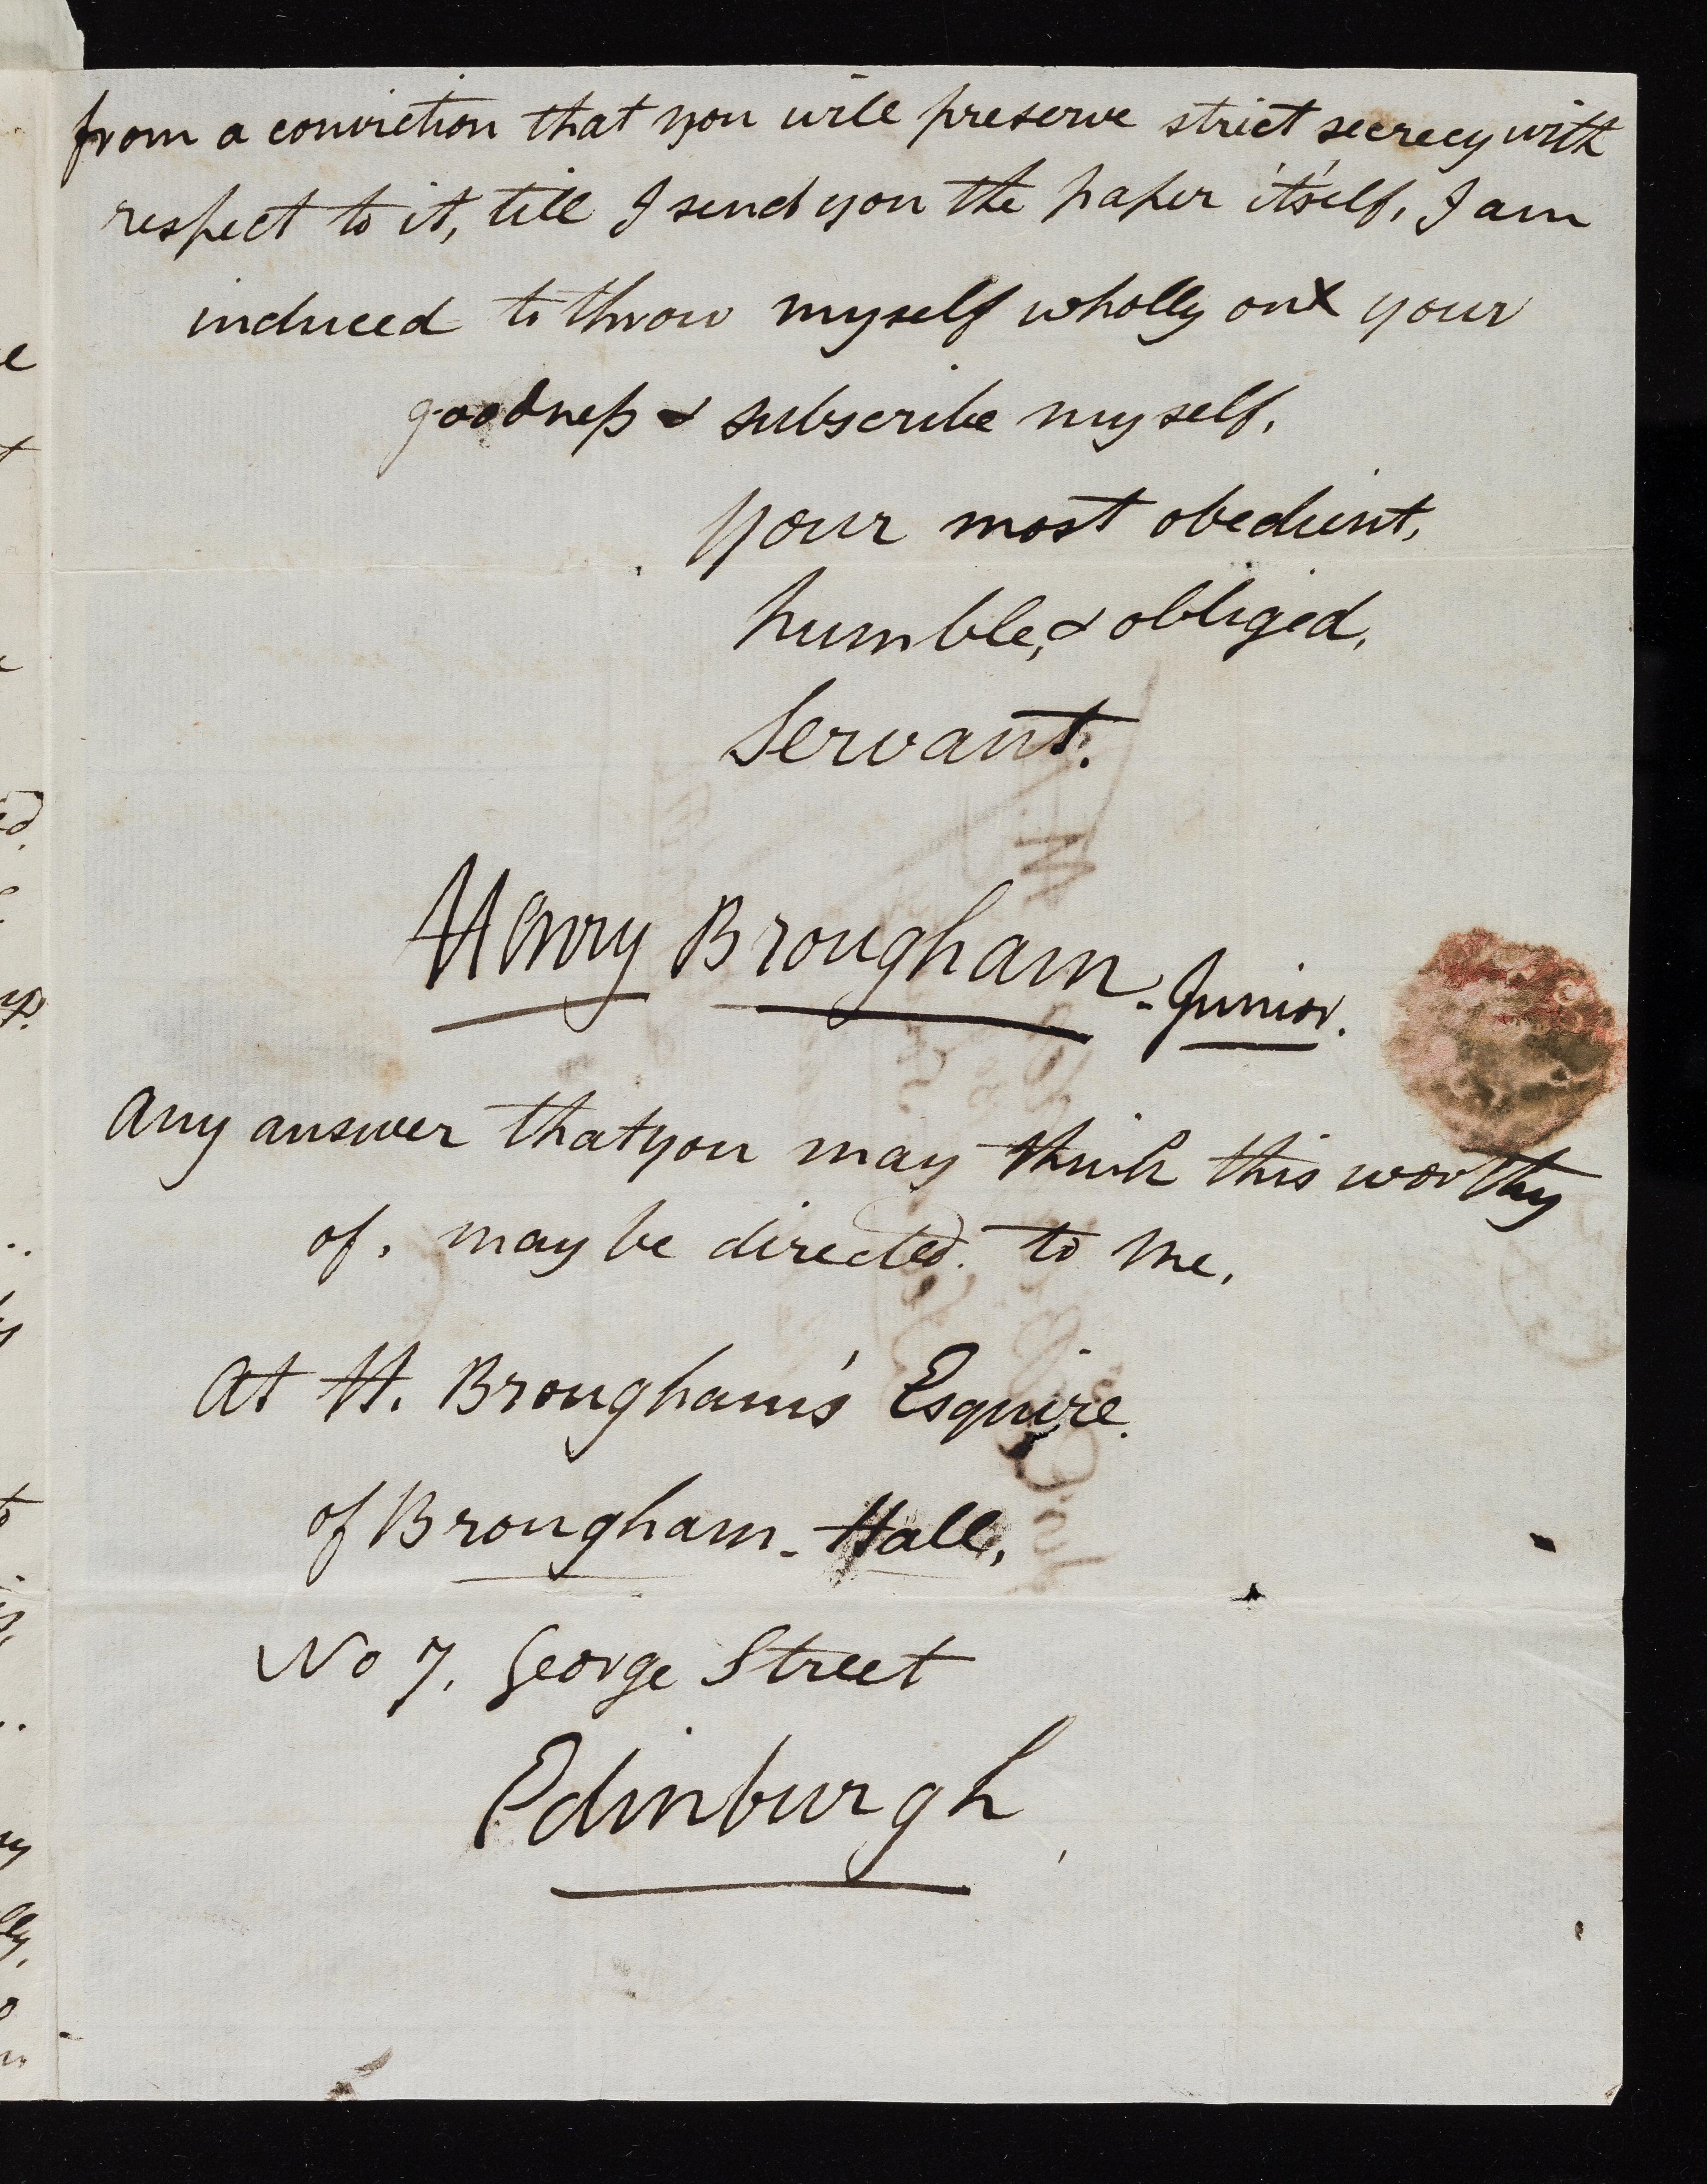 from a conviction that you will preserve strict secrecy with
respect to it, till I send you the paper it'self, I am
induced to throw myself wholly on your
goodness & subscribe myself,
your most obedient,
humble, & obliged,
Servant.
Henry Brougham - Junior.
Any answer that you may think this worthy
of, may be directed. to me,
At H. Brougham's Esquire.
of Brougham - Hall,
No 7, George Street
Edinburgh